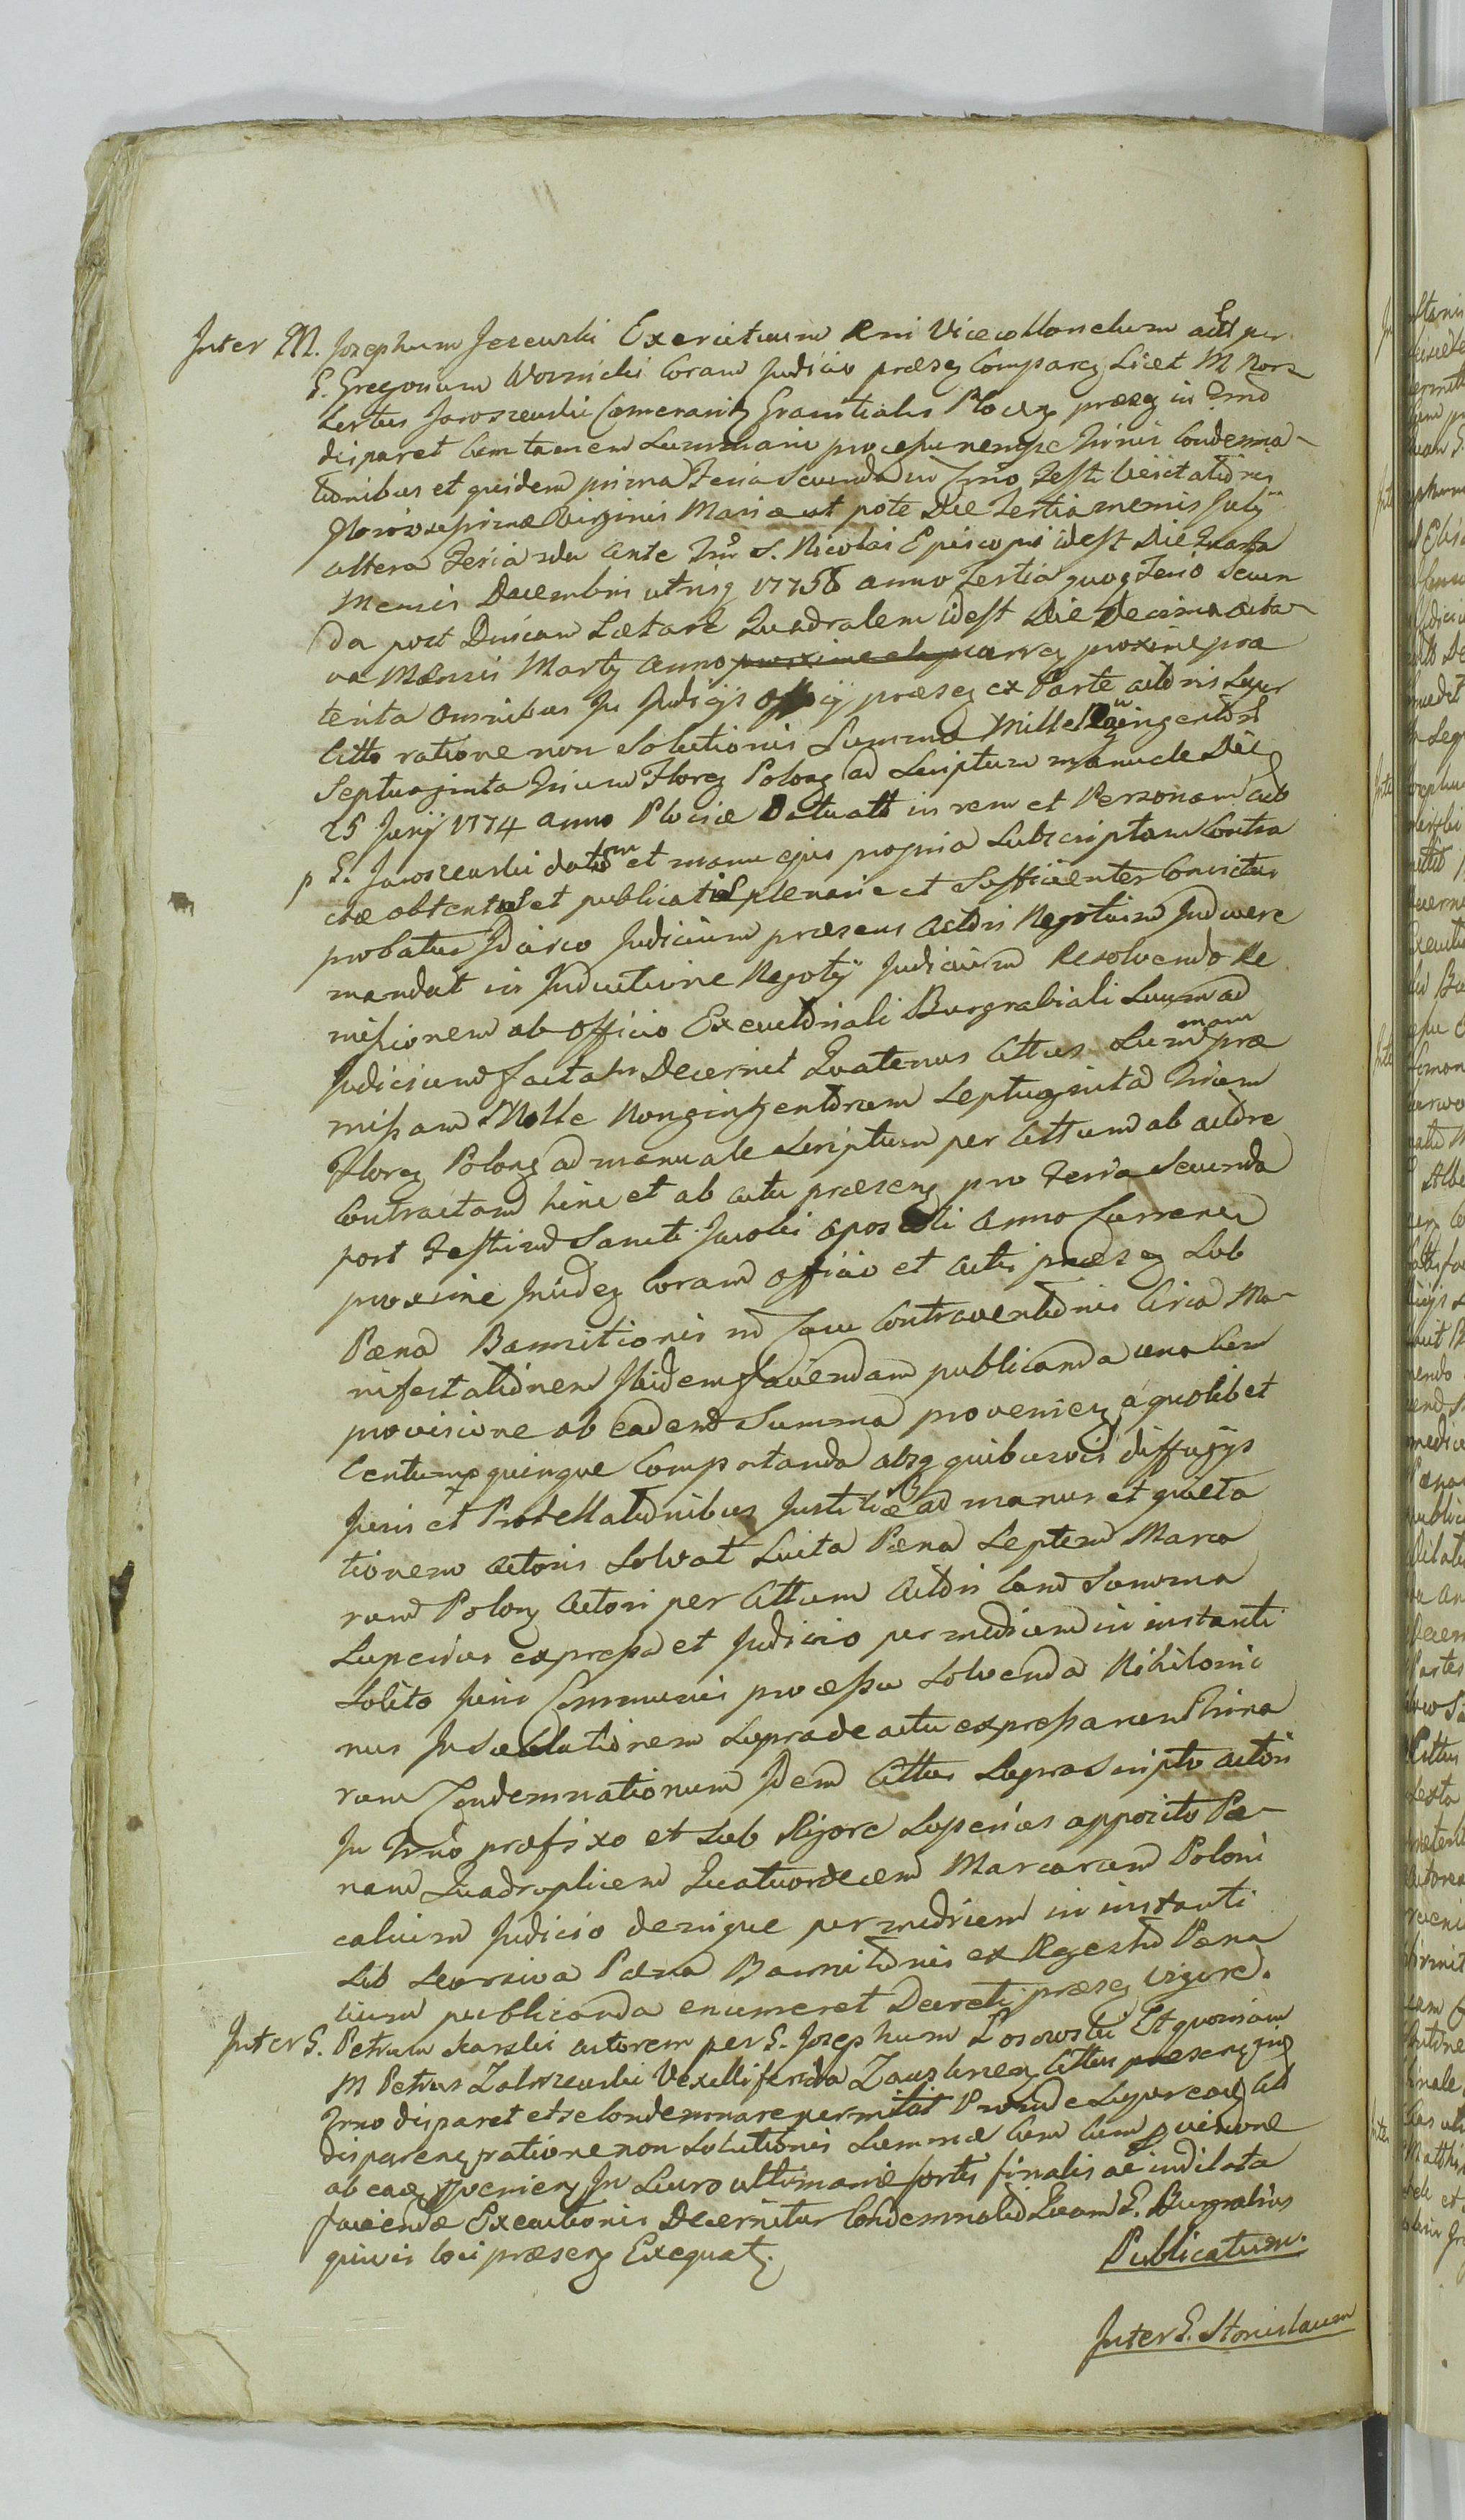 Inter M. Josephum Jezewski Exercituum Rni Vicecollonelum actt per
G. Gregorium Woznicki Coram Judicio præsen Comparen Licet M Nor
bertus Jaroszewski Camerarius Granitialis Plocen præsen in Trno
disparet Cum tamen Summario processu nempe trinis Condemna-
tionibus et quidem prima Feria Secunda in Crno Festi Visitationis
Gloriosissimæ Virginis Mariæ ut pote Die Tertia mensis July
altera Feria 2da ante Frm S. Nicolai Episcopi idest Die Quarta
Mensis Decembris utrisq 1775 anno Tertia quoq Feria Secun
da post Dnicam Lætare Quadralem idest Die Decima octa-
va Mensis Martij Anno proxime elapso curren proxime præ
terita Omnibus In Judicijs Offcij præsen ex Parte actoris Super
Citto ratione non Solutionis Summæ Mille Noningentor
Septuaginta trium Floren Polong ad Scriptum manuale Die
25 Junij 1774 anno Plociæ Datuatt in rem et Personam acto
p G. Jaroszewski datum et manu ejus propria Subscriptam Contra
ctæ obtentis et publicatis plenarie et Sufficienter Convictus
probatur Idcirco Judicium præsens actoris Negotium Inducere
mandat in Inductione Negotij Judicium Resolvendo Re
missionem ab Officio Executoriali Burgrabiali Suum ad
Judicium factam Decernit Quatenus Cittus Summam præ
missam Mille Nongintgentorum Septuginta Trium
Floren Polong ad manuale Scriptum per Cittum ab actore
Contractam hinc et ab actu præsen pro Feria Secunda
post Festum Sancti Jacobi Apostoli Anno Curren
proxime Inciden Coram Officio et Actis præsen Sub
Pæna Bannitionis in Casu Contraventionis Circa Ma-
nifestationem Ibidem faciendam publicanda una Cum
provisione ab eadem Summa provenien a quolibet
Centum quinque Computanda absq quibusvis diffugijs
Juris et Protellationibus Justitiæ ad manus et quieta
tionem actoris Solvat Luita Pæna Septem Marca
rum Polon Actori per Cittum Actoris Cum Summa
Superius expressa et Judicio per medium in instanti
Solito Juris Communis processu Solvenda Nihilomi
nus In Sublationem Supra de actu expressarum Trina
rum Condemnationum Idem Cittus Suprascripto actori
In Trno præfixo et Sub Rigore Superius apposito Pæ-
nam Quadruplicem Quatuordecem Marcarum Poloni
calium Judicio denique per medium in instanti
Sub Seorsiva Pæna Bannitionis ex Regestro Pæna
lium publicanda enumeret Decreti præsen vigore.
Inter G. Petrum Karski actorem per G. Josephum Losowski Et quoniam
M Petrus Zaloszewski Vexilliferida Zauskrzen Cittus præsen
Trno disparet et se Condemnare permittit Proinde Super eod Cit
disparen ratione non Solutionis Summæ Cum Cum pvisione
ab eaq pvenien In Lucro ultimariæ fortis finalis ac indilata
faciendæ Executionis Decernitur Condemnatio Quam G. Burgrabius
quivis loci præsen Exequat
Publicatum.
Inter G. Stanislaum